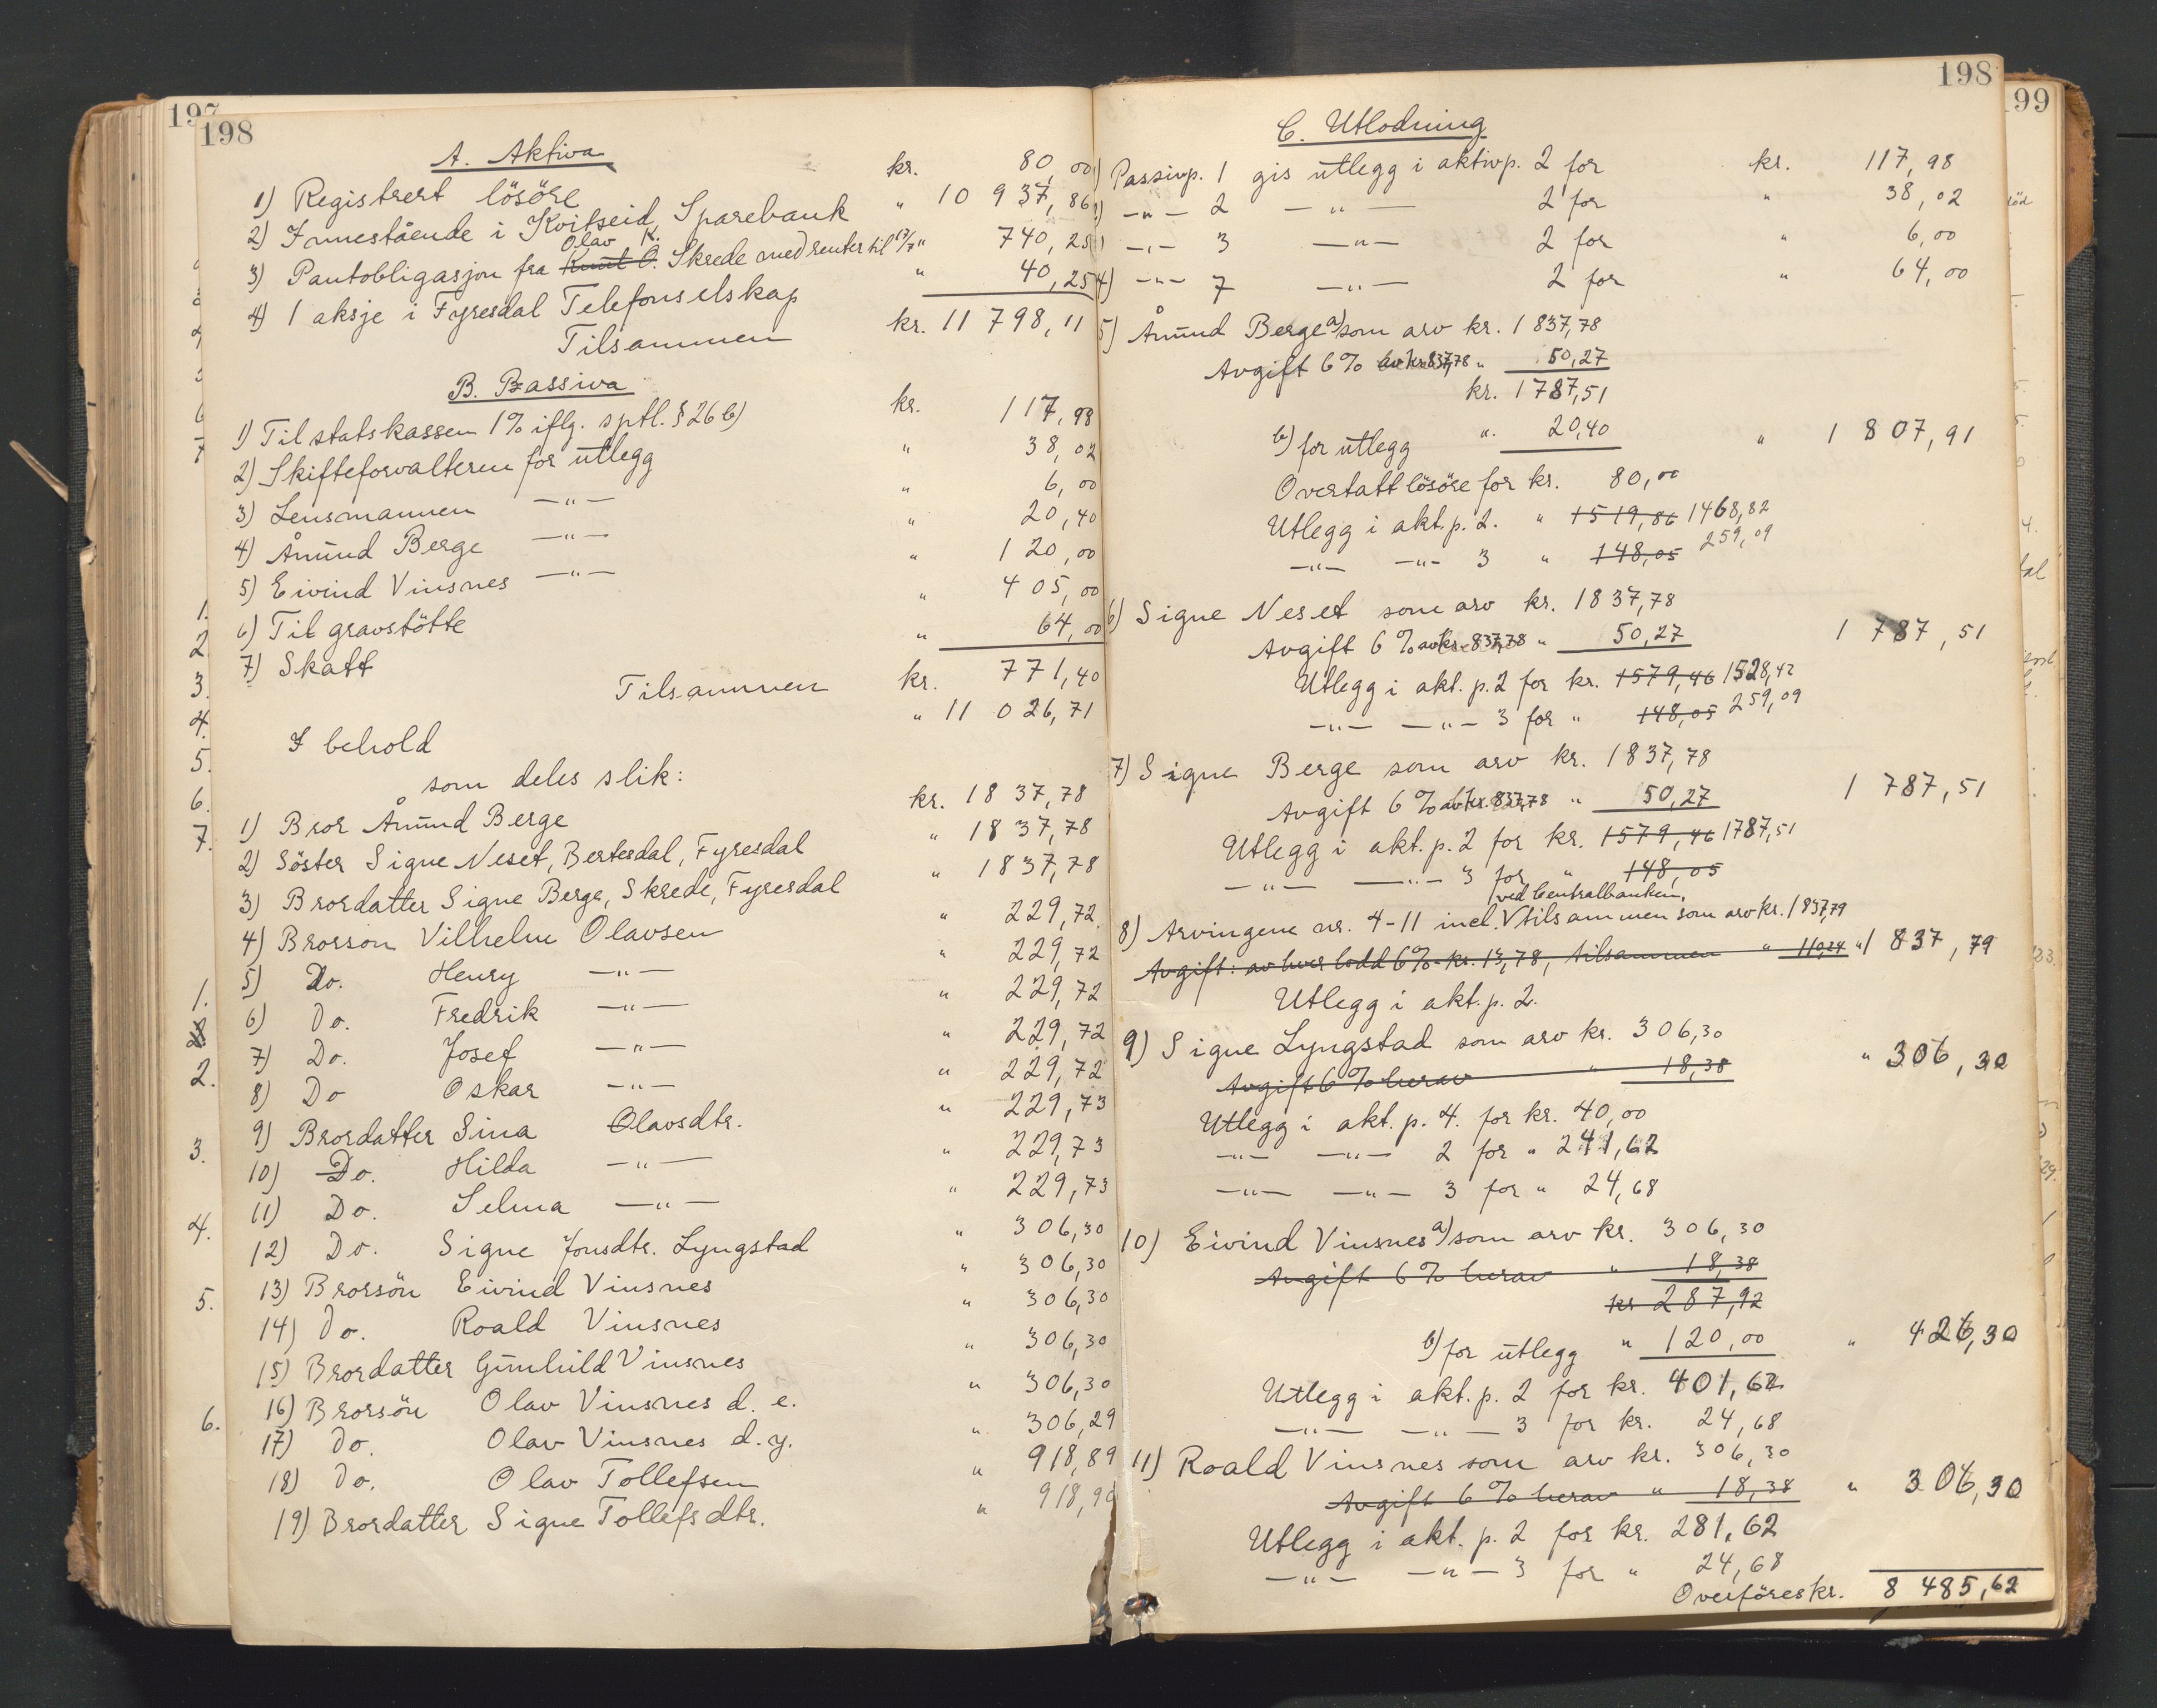 197
198
A. Aktiva
1) Registrert lösöre kr. 80,00
2) Innestående i Kvitseid Sparebank " 10 937,86
Olav K.
3) Pantobligasjon fra Knut O. Skrede med renter til 17/7 " 740,25
4) 1 aksje i Fyresdal Telefonselskap " 40,25
Tilsammen kr. 11 798,11
B. Passiva
1) Til statskassen 1% iflg. sptl. § 26 b) kr. 117,98
2) Skifteforvalteren for utlegg " 38,02
3) Lensmannen —"— " 6,00
4) Ånund Berge —"— " 20,40
5) Eivind Vinsnes —"— " 120,00
6) Til gravstötte " 405,00
7) Skatt " 64,00
Tilsammen kr. 771,40
I behold " 11 026,71
som deles slik:
1) Bror Ånund Berge kr. 1837,78
2) Söster Signe Neset, Bertesdal, Fyresdal " 1837,78
3) Brordatter Signe Berge, Skrede, Fyresdal " 1837,78
4) Brorson Vilhelm Olavsen " 229,72
5) Do. Henry —"— " 229,72
6) Do. Fredrik —"— " 229,72
7) Do. Josef —"— " 229,72
8) Do Oskar —"— " 229,72
9) Brordatter Sina Olavsdtr. " 229,73
10) Do. Hilda —"— " 229,73
11) Do. Selma —"— " 229,73
12) Do. Signe Jonsdtr. Lyngstad " 306,30
13) Brorsön Eivind Vinsnes " 306,30
14) Do. Roald Vinsnes " 306,30
15) Brordatter Gunhild Vinsnes " 306,30
16) Brorsön Olav Vinsnes d. e. " 306,30
17) Do. Olav Vinsnes d. y. " 306,29
18) Do. Olav Tollefsen " 918,89
19) Brordatter Signe Tollefsdtr. " 918,90
198
99
C. Utlodning
1) Passivp. 1 gis utlegg i aktivp. 2 for kr. 117,98
2) —"— 2 —"— 2 for " 38,02
3) —"— 3 —"— 2 for " 6,00
4) —"— 7 —"— 2 for " 64,00
5) Ånund Berge a) som arv kr. 1837,78
Avgift 6% av kr. 837,78 " 50,27
kr. 1787,51
b) for utlegg " 20,40 " 1 807,91
Overtatt lösöre for kr. 80,00
Utlegg i akt. p. 2. " 1519,86 1468,82
—"— —"— 3 " 148,05 259,09
6) Signe Neset som arv kr. 1837,78
Avgift 6% av kr. 837,78 " 50,27 1 787,51
Utlegg i akt. p. 2 for kr. 1579,46 1528,42
—"— —"— 3 for " 148,05 259,09
7) Signe Berge som arv kr. 1837,78
Avgift 6% av kr. 837,78 " 50,27 1 787,51
Utlegg i akt. p. 2 for kr. 1579,46 1787,51
—"— —"— 3 for " 148,05
ved Centralbanken,
8) Arvingene nr. 4-11 incl. V tilsammen som arv kr. 1837,79
Avgift: av hver lodd 6% - kr. 13,78, tilsammen " 110,24 " 1 837,79
Utlegg i akt. p. 2.
9) Signe Lyngstad som arv kr. 306,30
Avgift 6% herav " 18,38 " 306,30
Utlegg i akt. p. 4. for kr. 40,00
—"— —"— 2 for " 241,62
—"— —"— 3 for " 24,68
10) Eivind Vinsnes a) som arv kr. 306,30
Avgift 6% herav " 18,38
kr 287,92
b) for utlegg " 120,00 " 426,30
Utlegg i akt. p. 2 for kr. 401,62
—"— —"— 3 for kr. 24,68
11) Roald Vinsnes som arv kr. 306,30
Avgift 6% herav " 18,38 " 306,30
Utlegg i akt. p. 2 for kr. 281,62
—"— —"— 3 for " 24,68
Overföres kr. 8 485,62